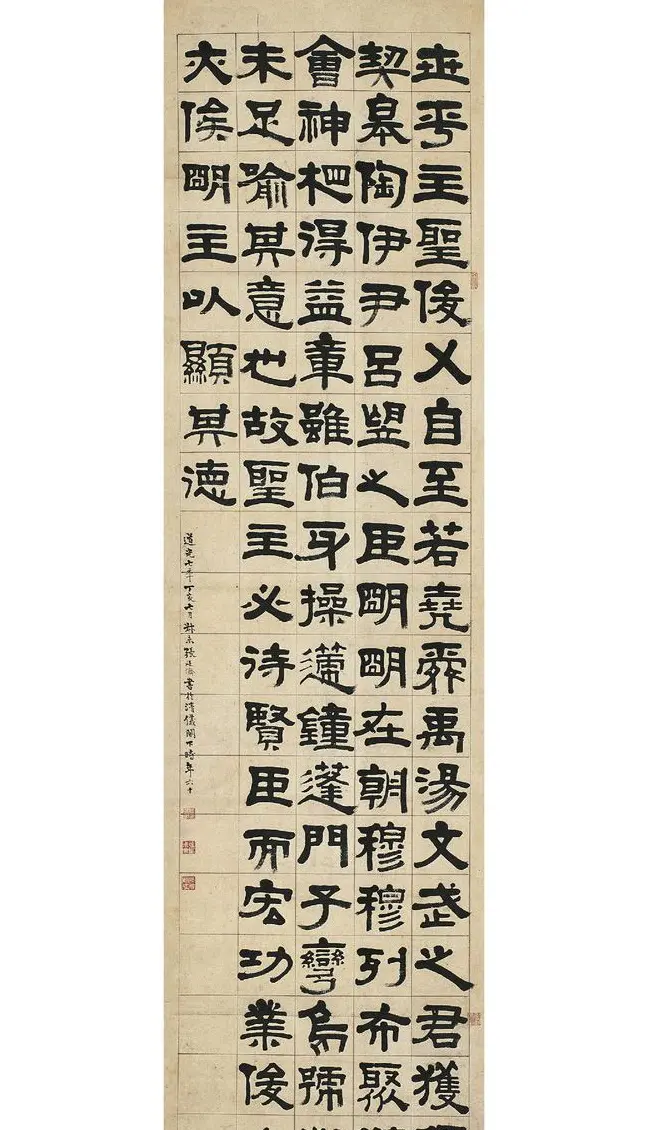 世平主聖俊乂自至若堯舜禹湯文武之君獲
契皋陶伊尹呂望之臣明明在朝穆穆列布聚
會神相得益章雖伯牙操遞鐘蓬門子彎烏號
未足喻其意也故聖主必待賢臣而宏功業俊
亦俟明主以顯其德
道光七年丁亥七月叔未張廷濟書於清儀閣下時年六十